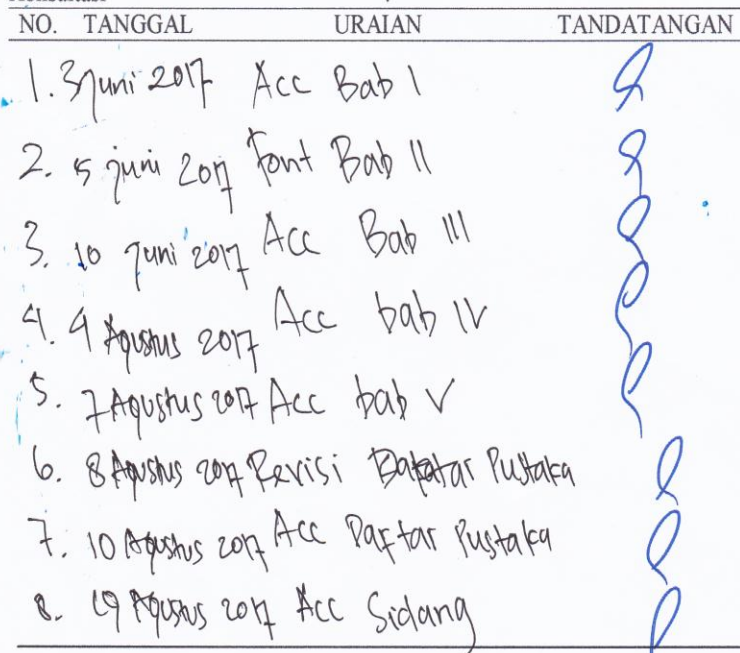 NO. TANGGAL URAIAN TANDATANGAN
1. 3 Juni 2017 Acc Bab I
2. 5 juni 2017 font Bab II
3. 10 Juni 2017 Acc Bab III
4. 4 Agustus 2017 Acc bab IV
5. 7 Agustus 2017 Acc bab V
6. 8 Agustus 2017 Revisi Pustaka
7. 10 Agustus 2017 Acc Daftar Pustaka
8. 19 Agustus 2017 Acc Sidang